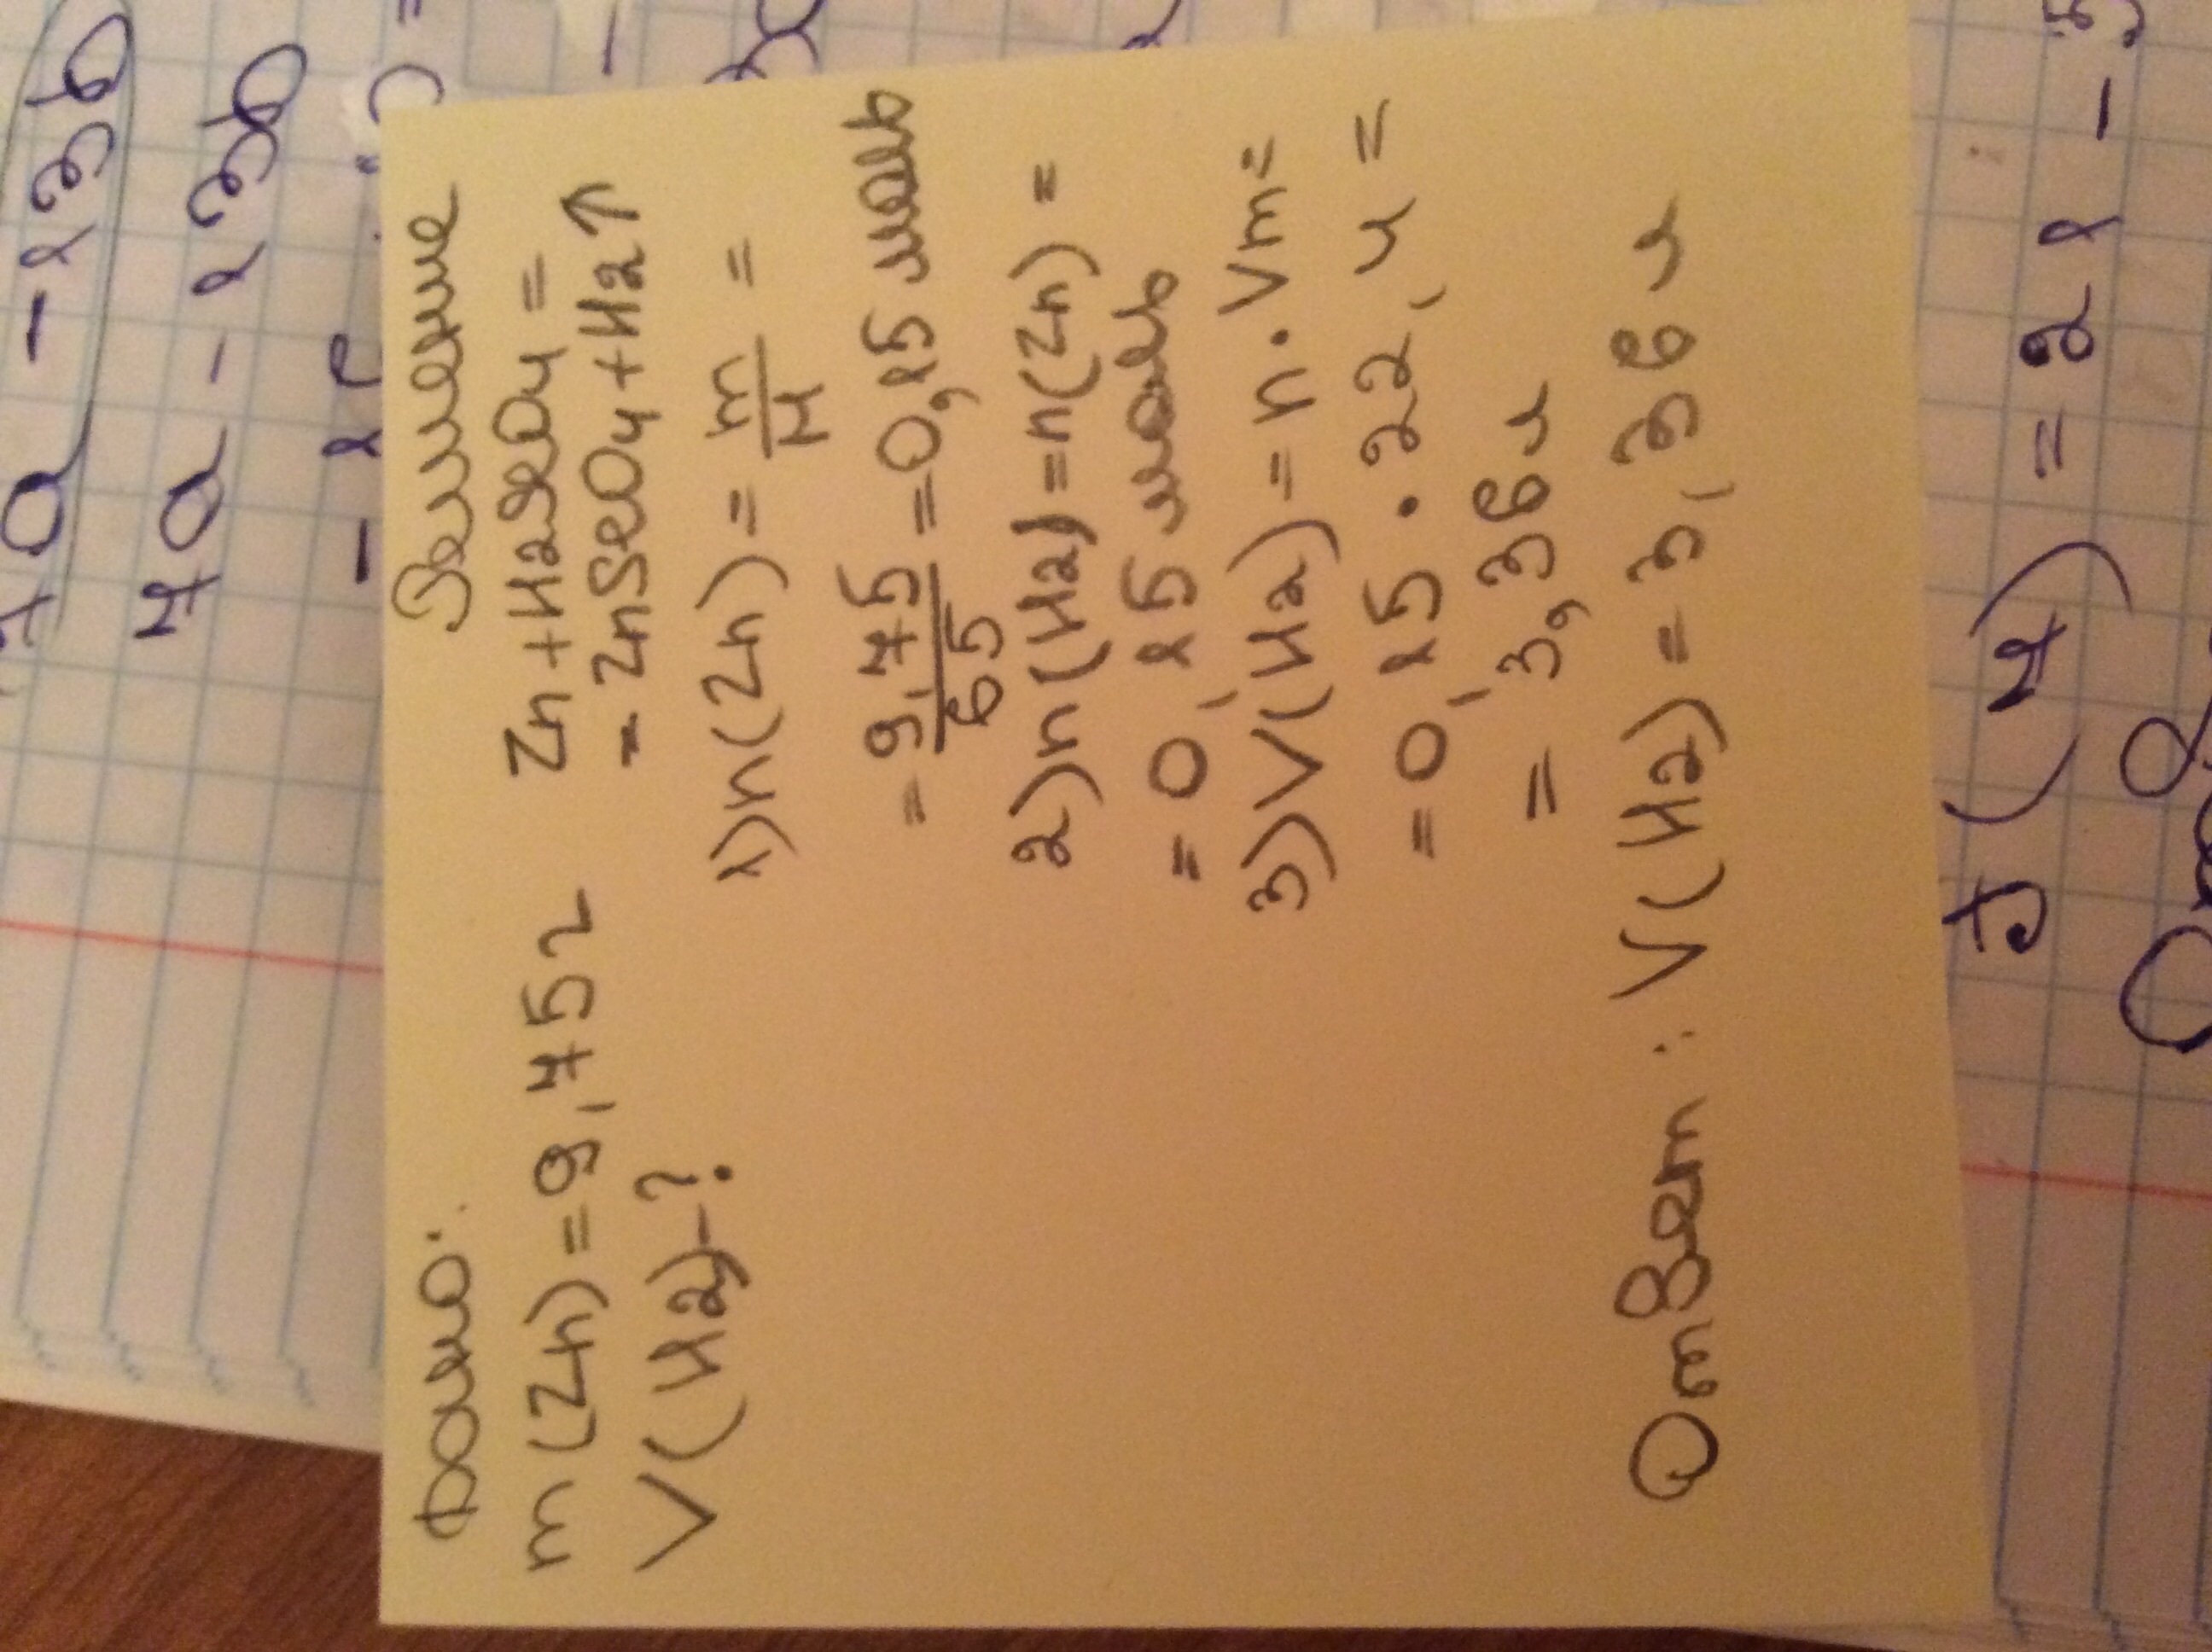 Дано:
m(Zn)=9,75г
V(H2)-?
Решение
Zn+H2SeO4=
=ZnSeO4+H2↑
1)n(Zn)=m/M=
=9,75/65=0,15моль
2)n(H2)=n(Zn)=
=0,15моль
3)V(H2)=n·Vm=
=0,15·22,4=
=3,36л
Ответ: V(H2)=3,36л
4a-13b
J(4)=21-